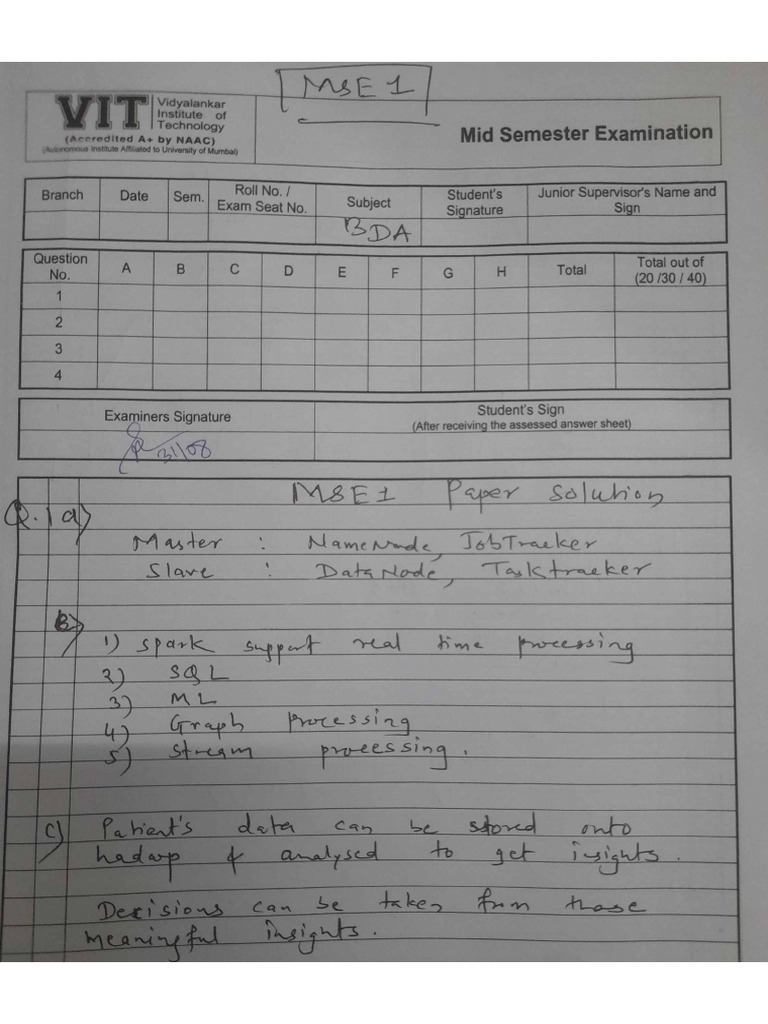 MSE 1
VIT Vidyalankar Institute of Technology
(Accredited A+ by NAAC)
(Autonomous Institute Affiliated to University of Mumbai)
Mid Semester Examination
Branch Date Sem. Roll No. / Exam Seat No. Subject Student's Signature Junior Supervisor's Name and Sign
BDA
Question No. A B C D E F G H Total Total out of (20 /30 / 40)
1
2
3
4
Examiners Signature
Student's Sign
(After receiving the assessed answer sheet)
31/08
MSE1 Paper Solution
Q.1 a)
Master : NameNode, JobTracker
Slave : DataNode, Tasktracker
B)
1) Spark support real time processing
2) SQL
3) ML
4) Graph processing
5) Stream processing.
c) Patient's data can be stored onto
hadoop & analysed to get insights.
Decisions can be taken from those
meaningful insights.